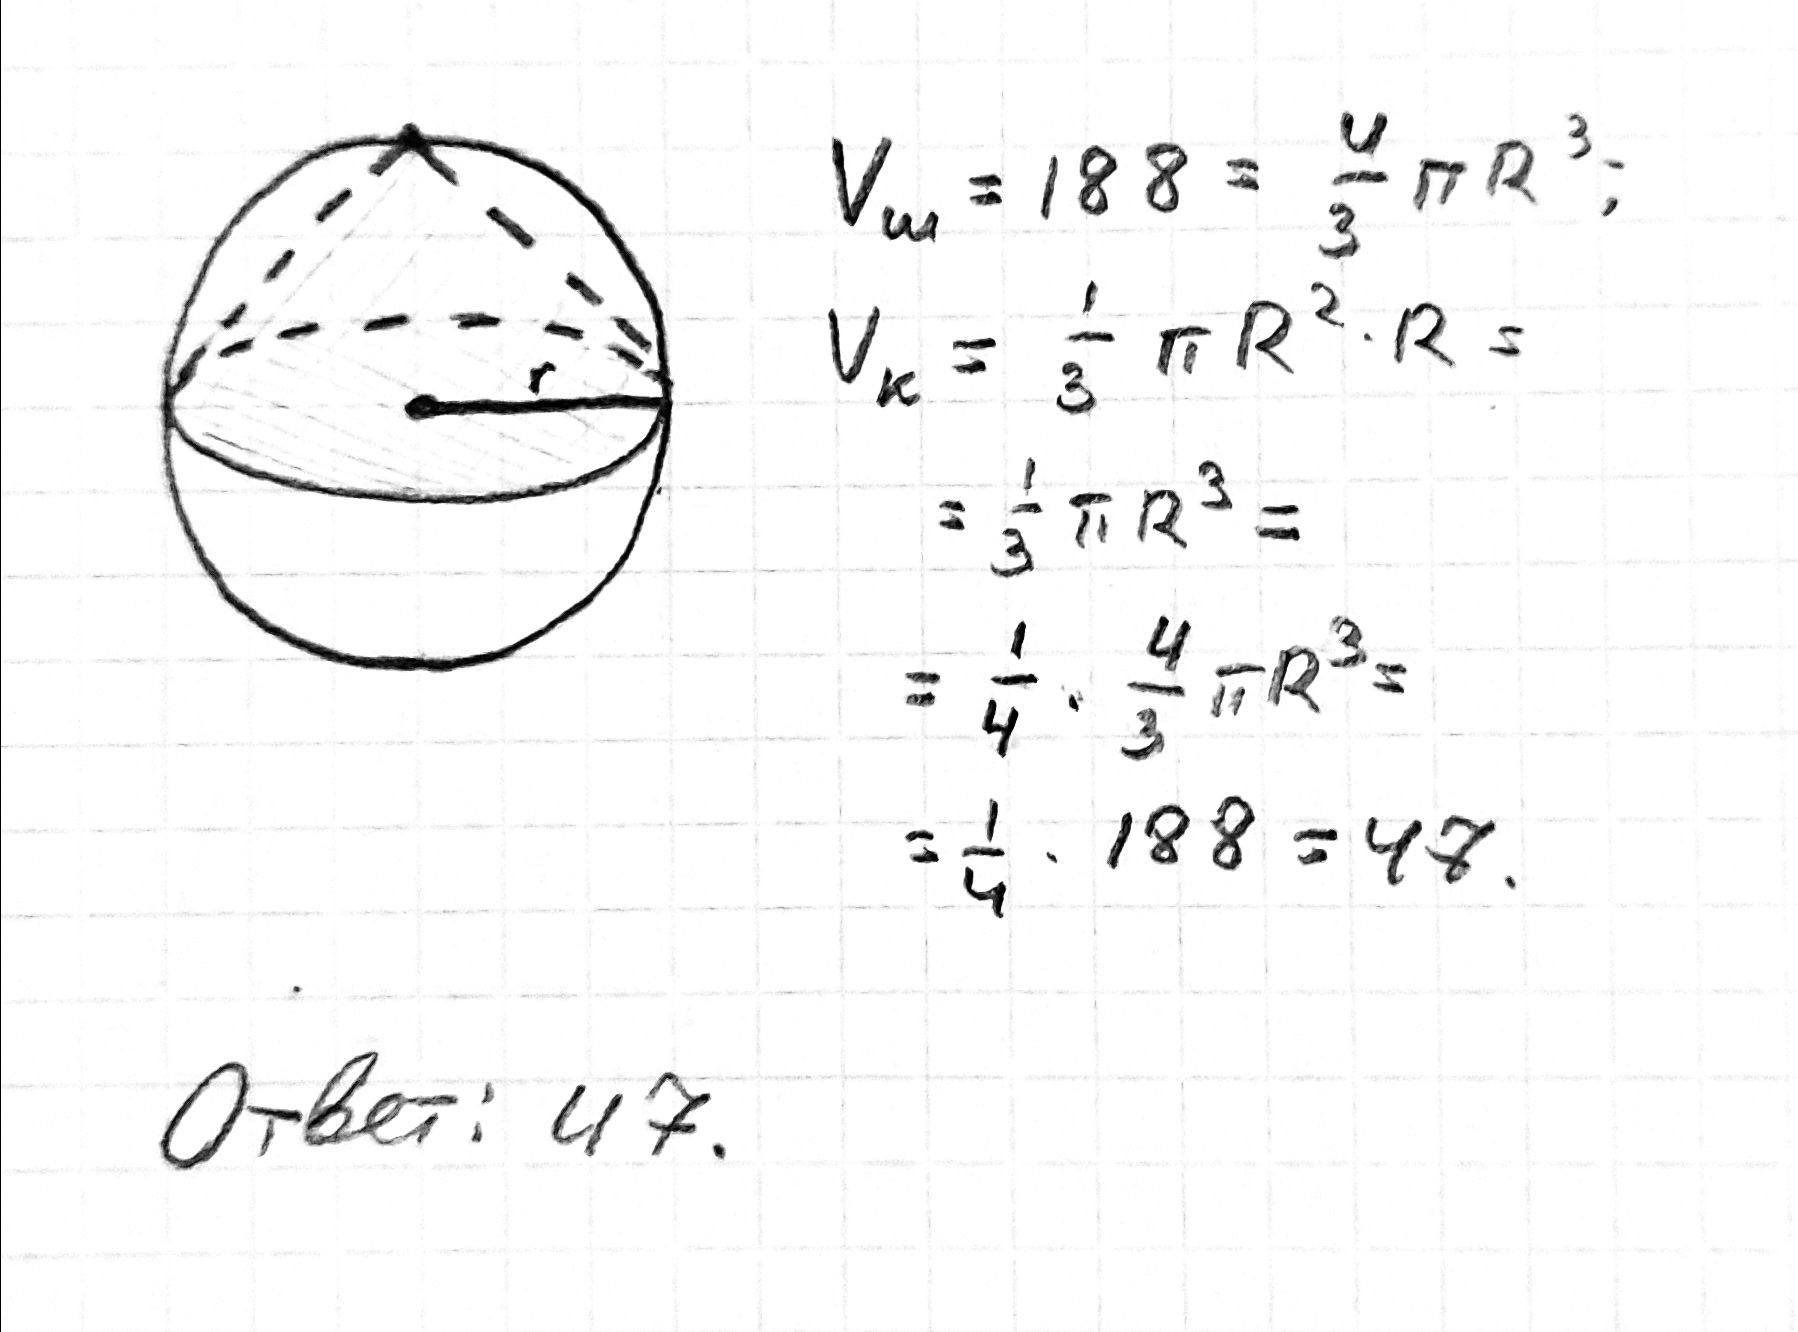 r
Vш = 188 = 4/3 πR³;
Vк = 1/3 πR² · R =
= 1/3 πR³ =
= 1/4 · 4/3 πR³ =
= 1/4 · 188 = 47.
Ответ: 47.